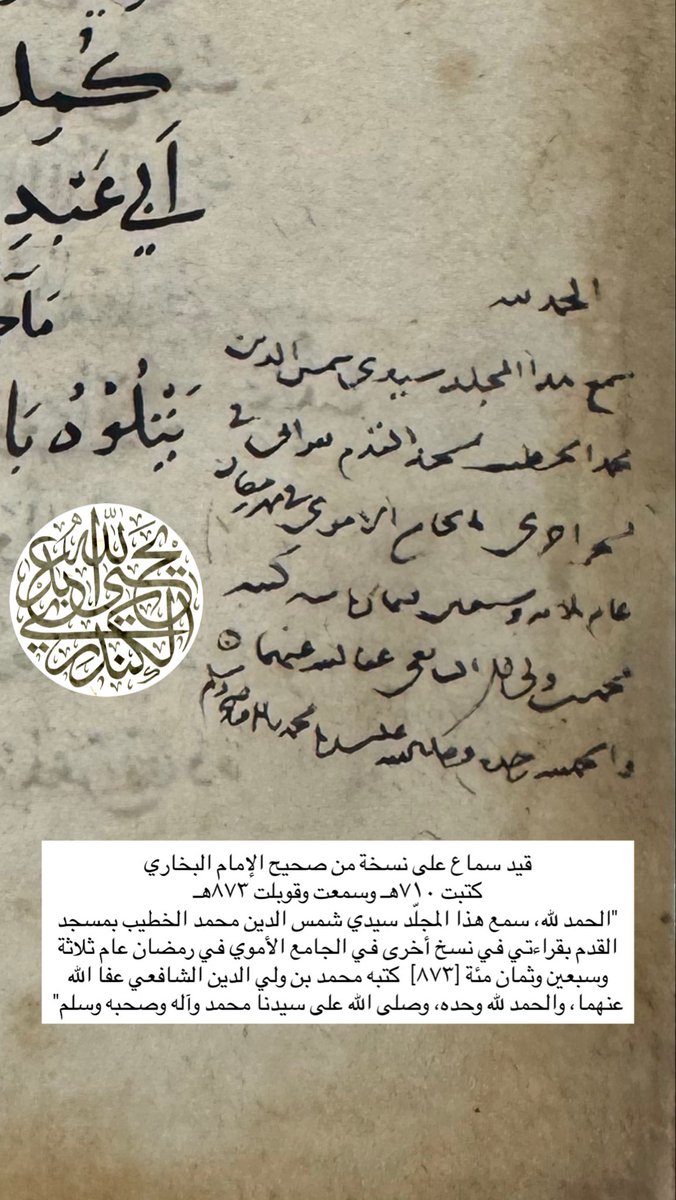 كمل
أبي عبد
ما
يتلوه با
الحمد لله
سمع هذا المجلد سيدي شمس الدين
محمد الخطيب بمسجد القدم بقراءتي في
نسخ أخرى بالجامع الأموي في رمضان
عام ثلاثة وسبعين وثمان مئة كتبه
محمد بن ولي الدين الشافعي عفا الله عنهما
والحمد لله وحده وصلى الله على سيدنا محمد وآله وصحبه وسلم
قيد سماع على نسخة من صحيح الإمام البخاري
كتبت ٧١٠هـ وسمعت وقوبلت ٨٧٣هـ
"الحمد لله، سمع هذا المجلّد سيدي شمس الدين محمد الخطيب بمسجد
القدم بقراءتي في نسخ أخرى في الجامع الأموي في رمضان عام ثلاثة
وسبعين وثمان مئة [٨٧٣] كتبه محمد بن ولي الدين الشافعي عفا الله
عنهما، والحمد لله وحده، وصلى الله على سيدنا محمد وآله وصحبه وسلم"